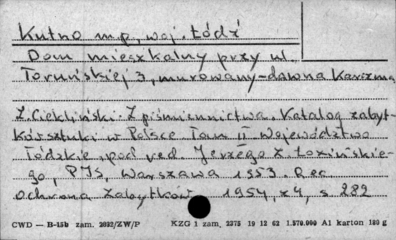 Kutno m.p., woj. Łódź
Dom mieszkalny przy ul.
Toruńskiej 3, murowany - dawna Karczma
Z. Ciekliński - Z piśmiennictwa. Katalog zabyt-
ków sztuki w Polsce Tom II Województwo
łódzkie, pod red Jerzego Z. Łozińskie-
go, PIS, Warszawa 1953. Rec
Ochrona Zabytków 1954, z 4, s. 282
CWD — B-15b zam. 3092/ZW/P KZG 1 zam. 2375 19 12 62 1.570.000 A1 karton 180 g